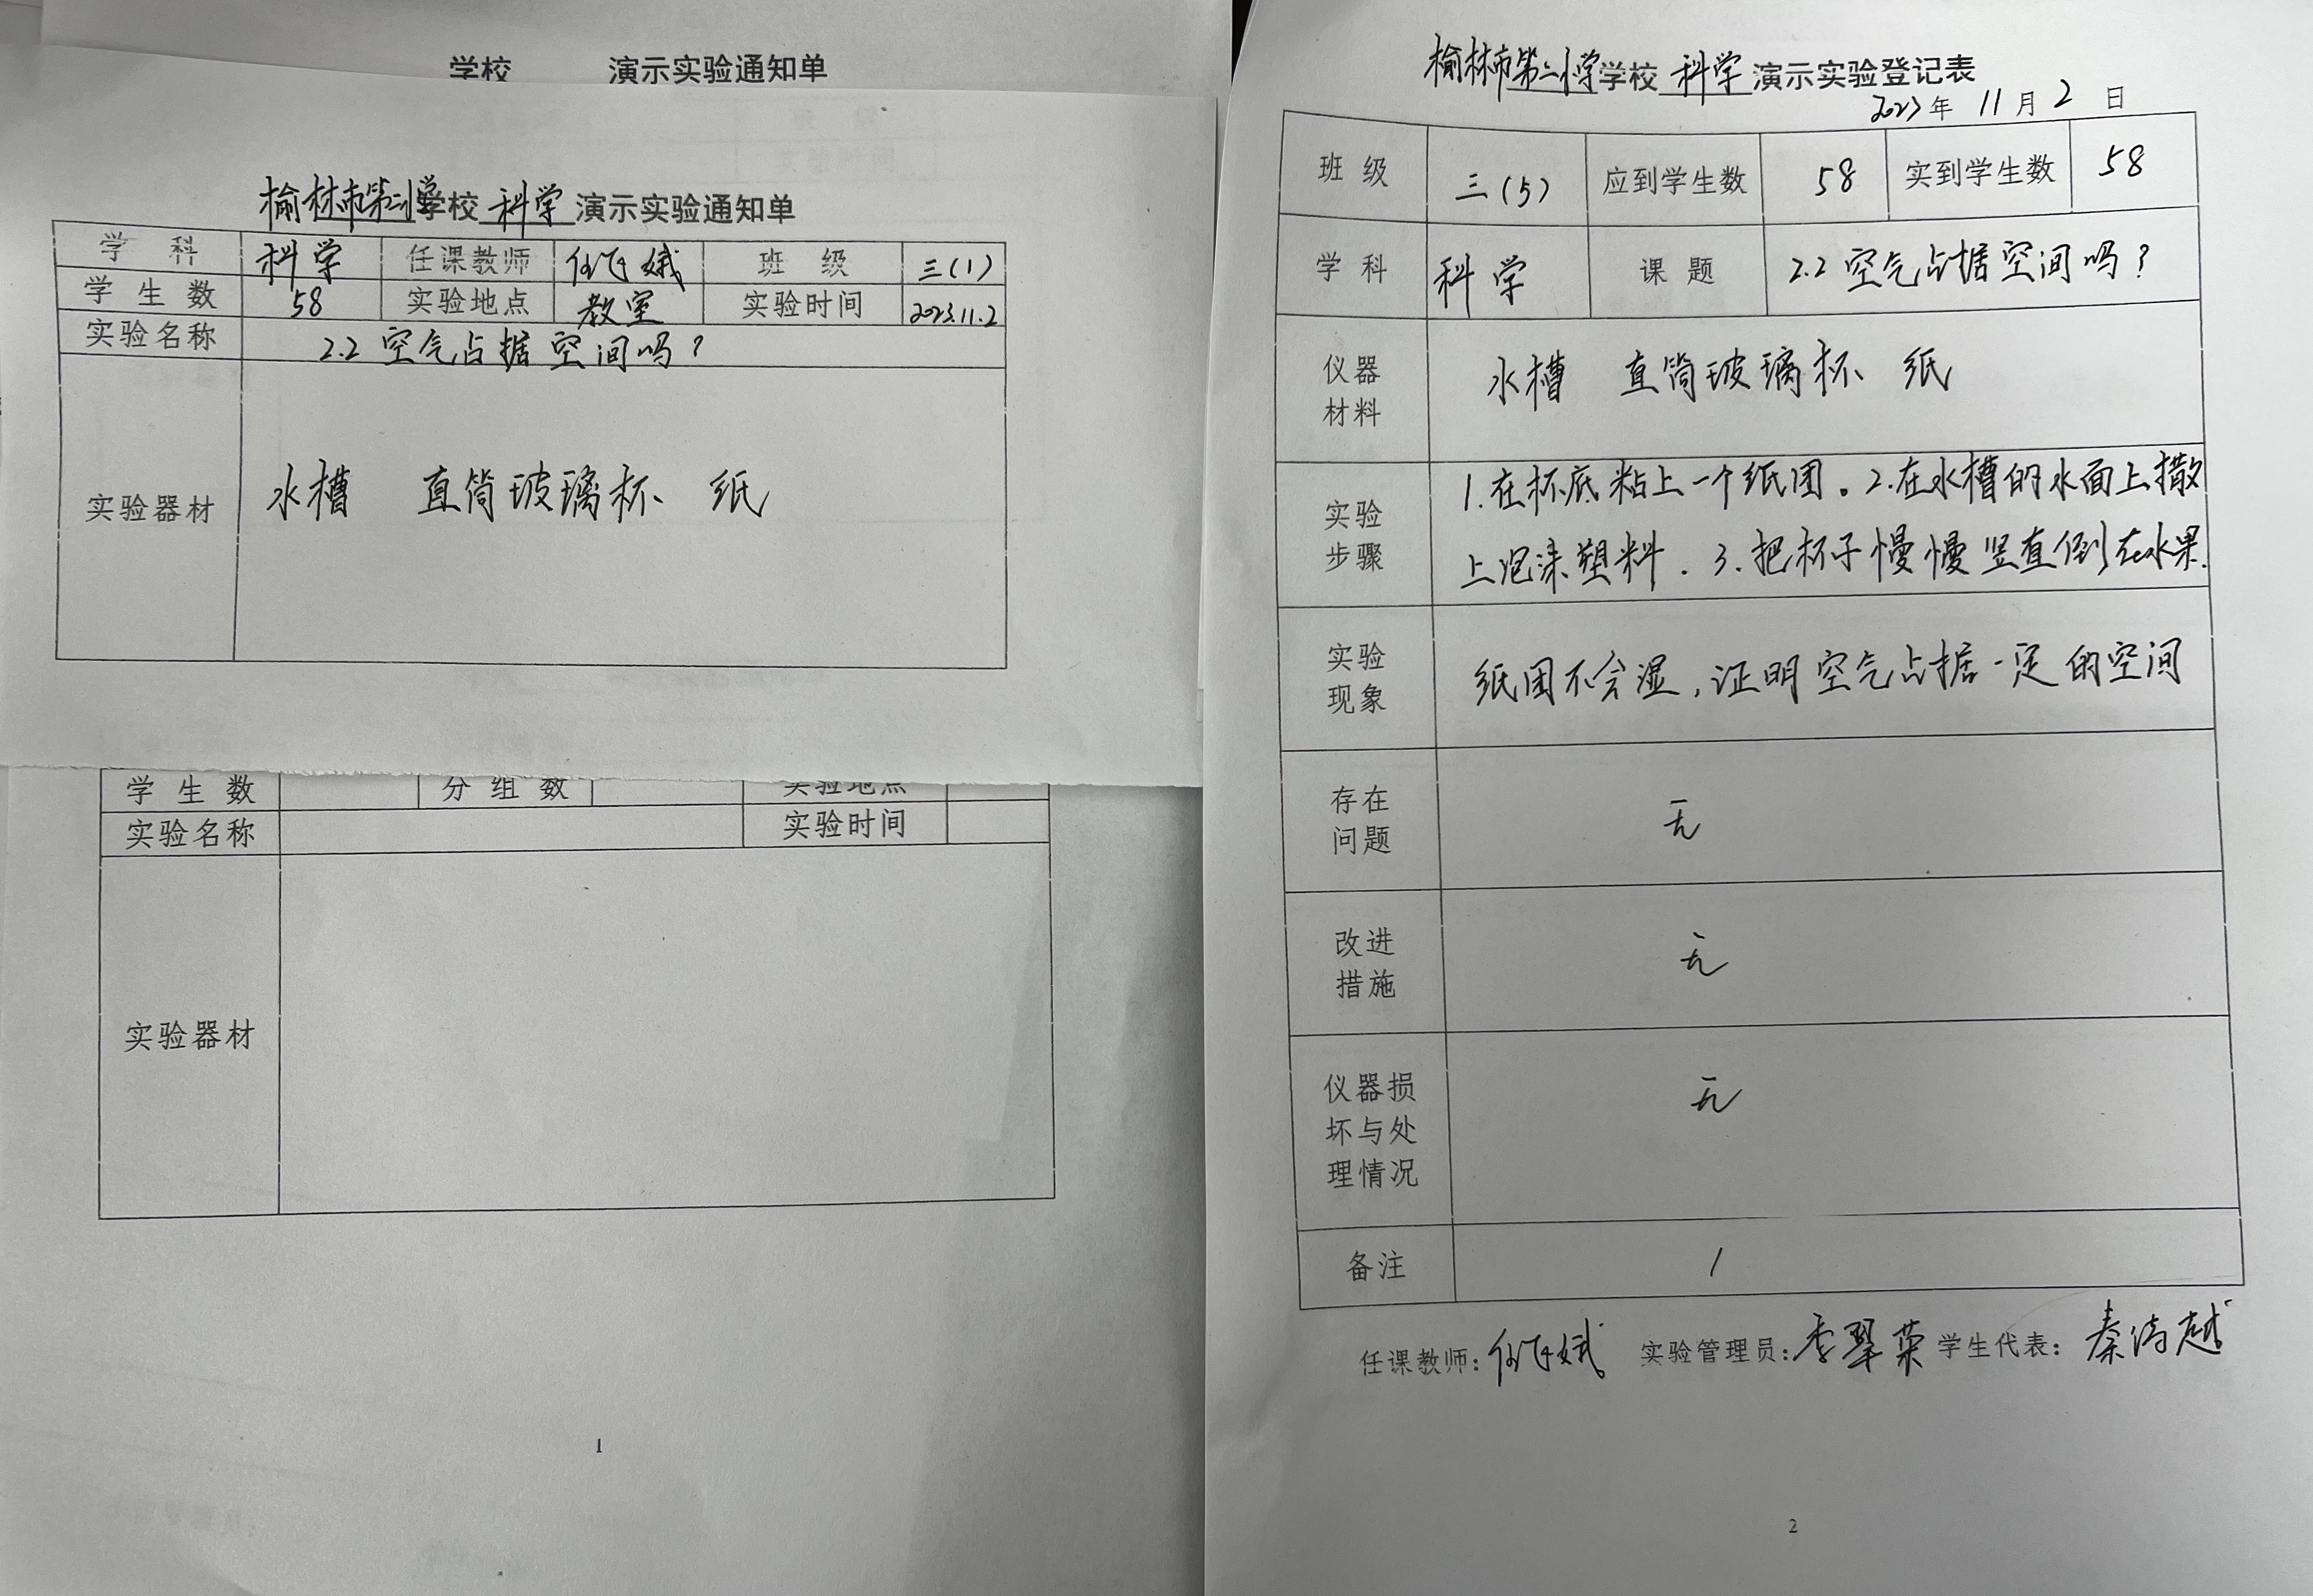 学校 演示实验通知单
榆林市第二小学学校 科学 演示实验通知单
学 科 科学 任课教师 班 级 三(1)
学 生 数 58 实验地点 教室 实验时间 2023.11.2
实验名称 2.2 空气占据空间吗?
实验器材 水槽 直筒玻璃杯 纸
学 生 数 分 组 数 实验地点
实验名称 实验时间
实验器材
1
榆林市第二小学学校 科学 演示实验登记表
2023年 11月 2 日
班 级 三(5) 应到学生数 58 实到学生数 58
学 科 科学 课 题 2.2 空气占据空间吗?
仪器
材料
水槽 直筒玻璃杯 纸
实验
步骤
1.在杯底粘上一个纸团。2.在水槽的水面上撒
上泡沫塑料.3.把杯子慢慢竖直倒在水果.
实验
现象
纸团不会湿,证明空气占据一定的空间
存在
问题
无
改进
措施
无
仪器损
坏与处
理情况
无
备注 /
任课教师: 实验管理员:李翠荣 学生代表:
2